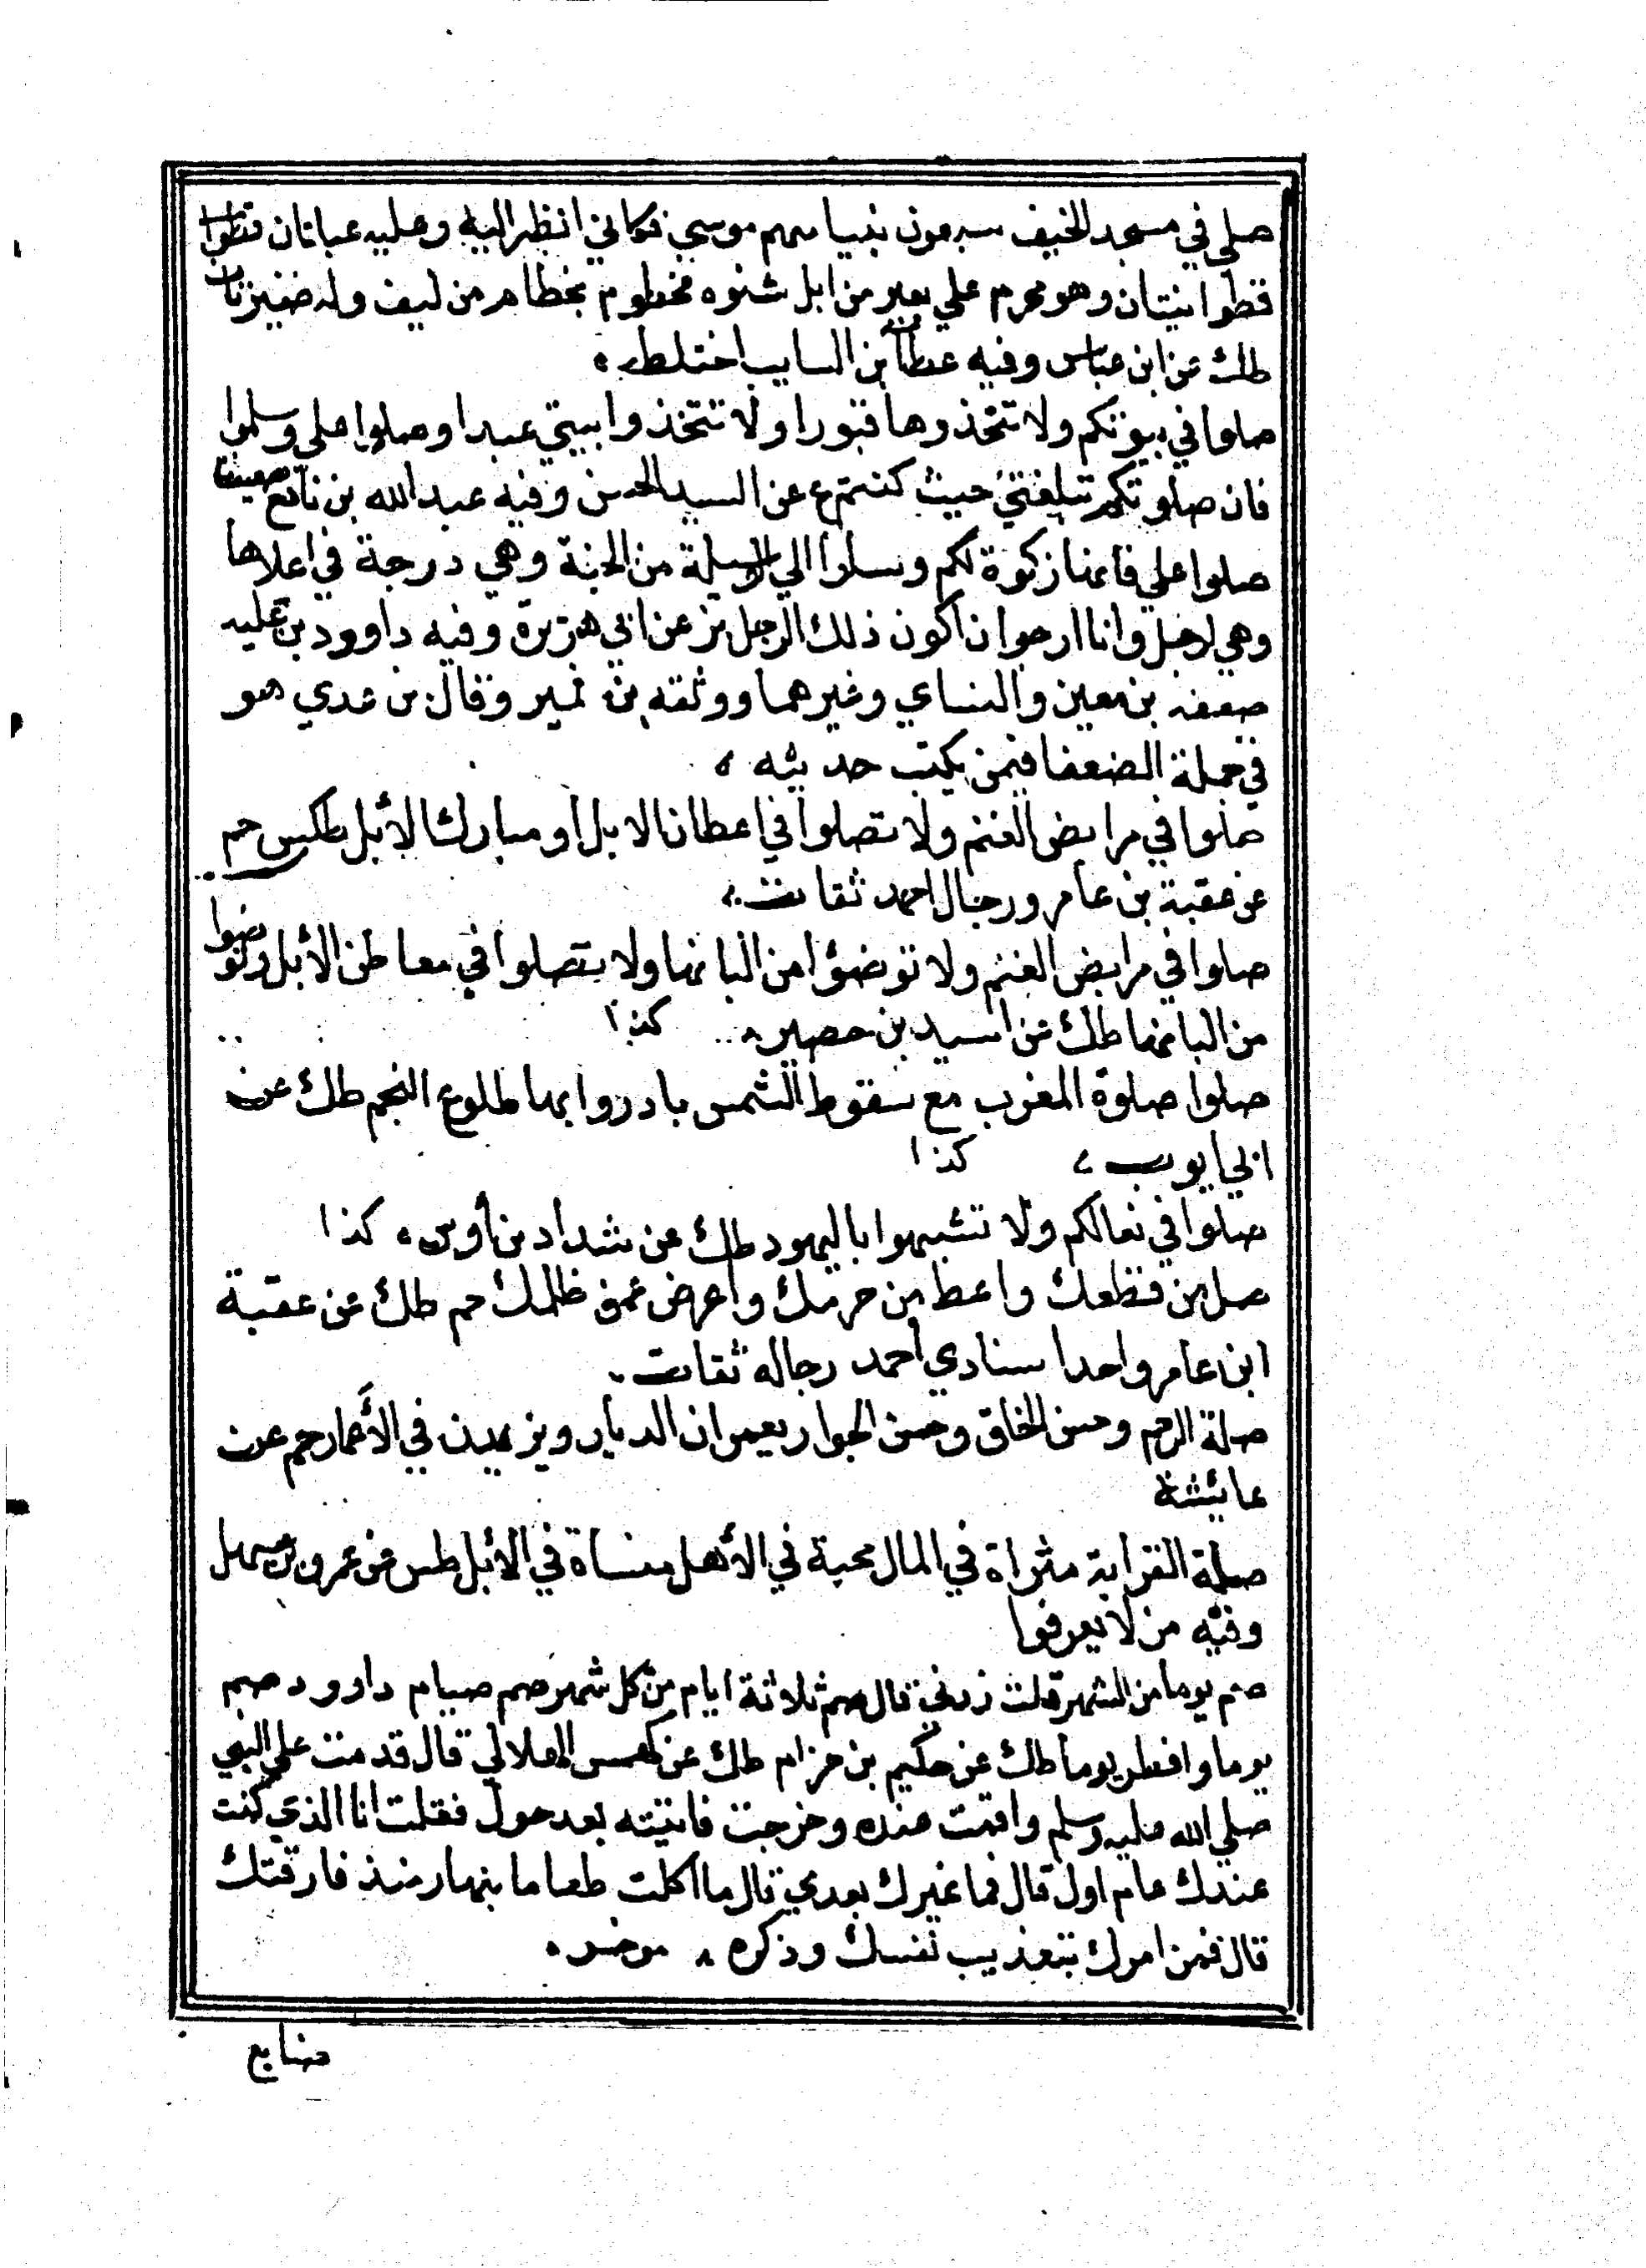 صلي في مسجد الخيف سبعون نبيا منهم موسي فكاني انظر اليه وعليه عباتان قطوا
قطوا نيتان وهو محرم علي بعير من ابل شنوه مخطوم بخطام من ليف وله ضفيرتان
طك عن ابن عباس وفيه عطا بن السايب اختلط
صلوا في بيوتكم ولا تتخذوها قبورا ولا تتخذوا بيتي عيدا وصلوا علي وسلموا
فان صلوتكم تبلغني حيث كنتم ع عن السيد الحسن وفيه عبد الله بن نافع ضعيف
صلوا علي فانها زكوة لكم وسلوا الي الوسيلة من الجنة وهي درجة في اعلاها
وهي لرجل وانا ارجوا ان اكون ذلك الرجل بز عن ابي هريرة وفيه داوود بن علبه
ضعفه بن معين والنساي وغيرهما ووثقه بن نمير وقال بن عدي هو
في جملة الضعفا فيمن يكتب حديثه
صلوا في مرابض الغنم ولا تصلوا في اعطان الابل او مبارك الأبل طكس حم
عن عقبة بن عامر ورجال احمد ثقات
صلوا في مرابض الغنم ولا توضؤا من البانها ولا تصلوا في معاطن الأبل وتوضوا
من البانها طك عن اسيد بن حضير كذا
صلوا صلوة المغرب مع سقوط الشمس بادروا بها طلوع النجم طك عن
ابي ايوب كذا
صلوا في نعالكم ولا تشبهوا باليهود طك عن شداد بن أوس كذا
صل من قطعك واعط من حرمك واعرض عمن ظلمك حم طك عن عقبة
ابن عامر واحدا سنادي أحمد رجاله ثقات
صلة الرحم وحسن الخلق وحسن الجوار يعمران الديار ويزيدن في الأعمار حم عن
عايشة
صلة القرابة مثراة في المال محبة في الأهل منساة في الأبل طس عن عمرو بن سهل
وفيه من لا يعرفوا
صم يوما من الشهر قلت زدني قال صم ثلاثة ايام من كل شهر صم صيام داوود صم
يوما وافطر يوما طك عن حكيم بن حزام طك عن كهمس الهلالي قال قدمت علي النبي
صلي الله عليه وسلم واقمت عنده وخرجت فاتيته بعد حول فقلت انا الذي كنت
عندك عام اول قال فما غيرك بعدي قال ما اكلت طعاما بنهار منذ فارقتك
قال فمن امرك بتعذيب نفسك وذكره
صنايع